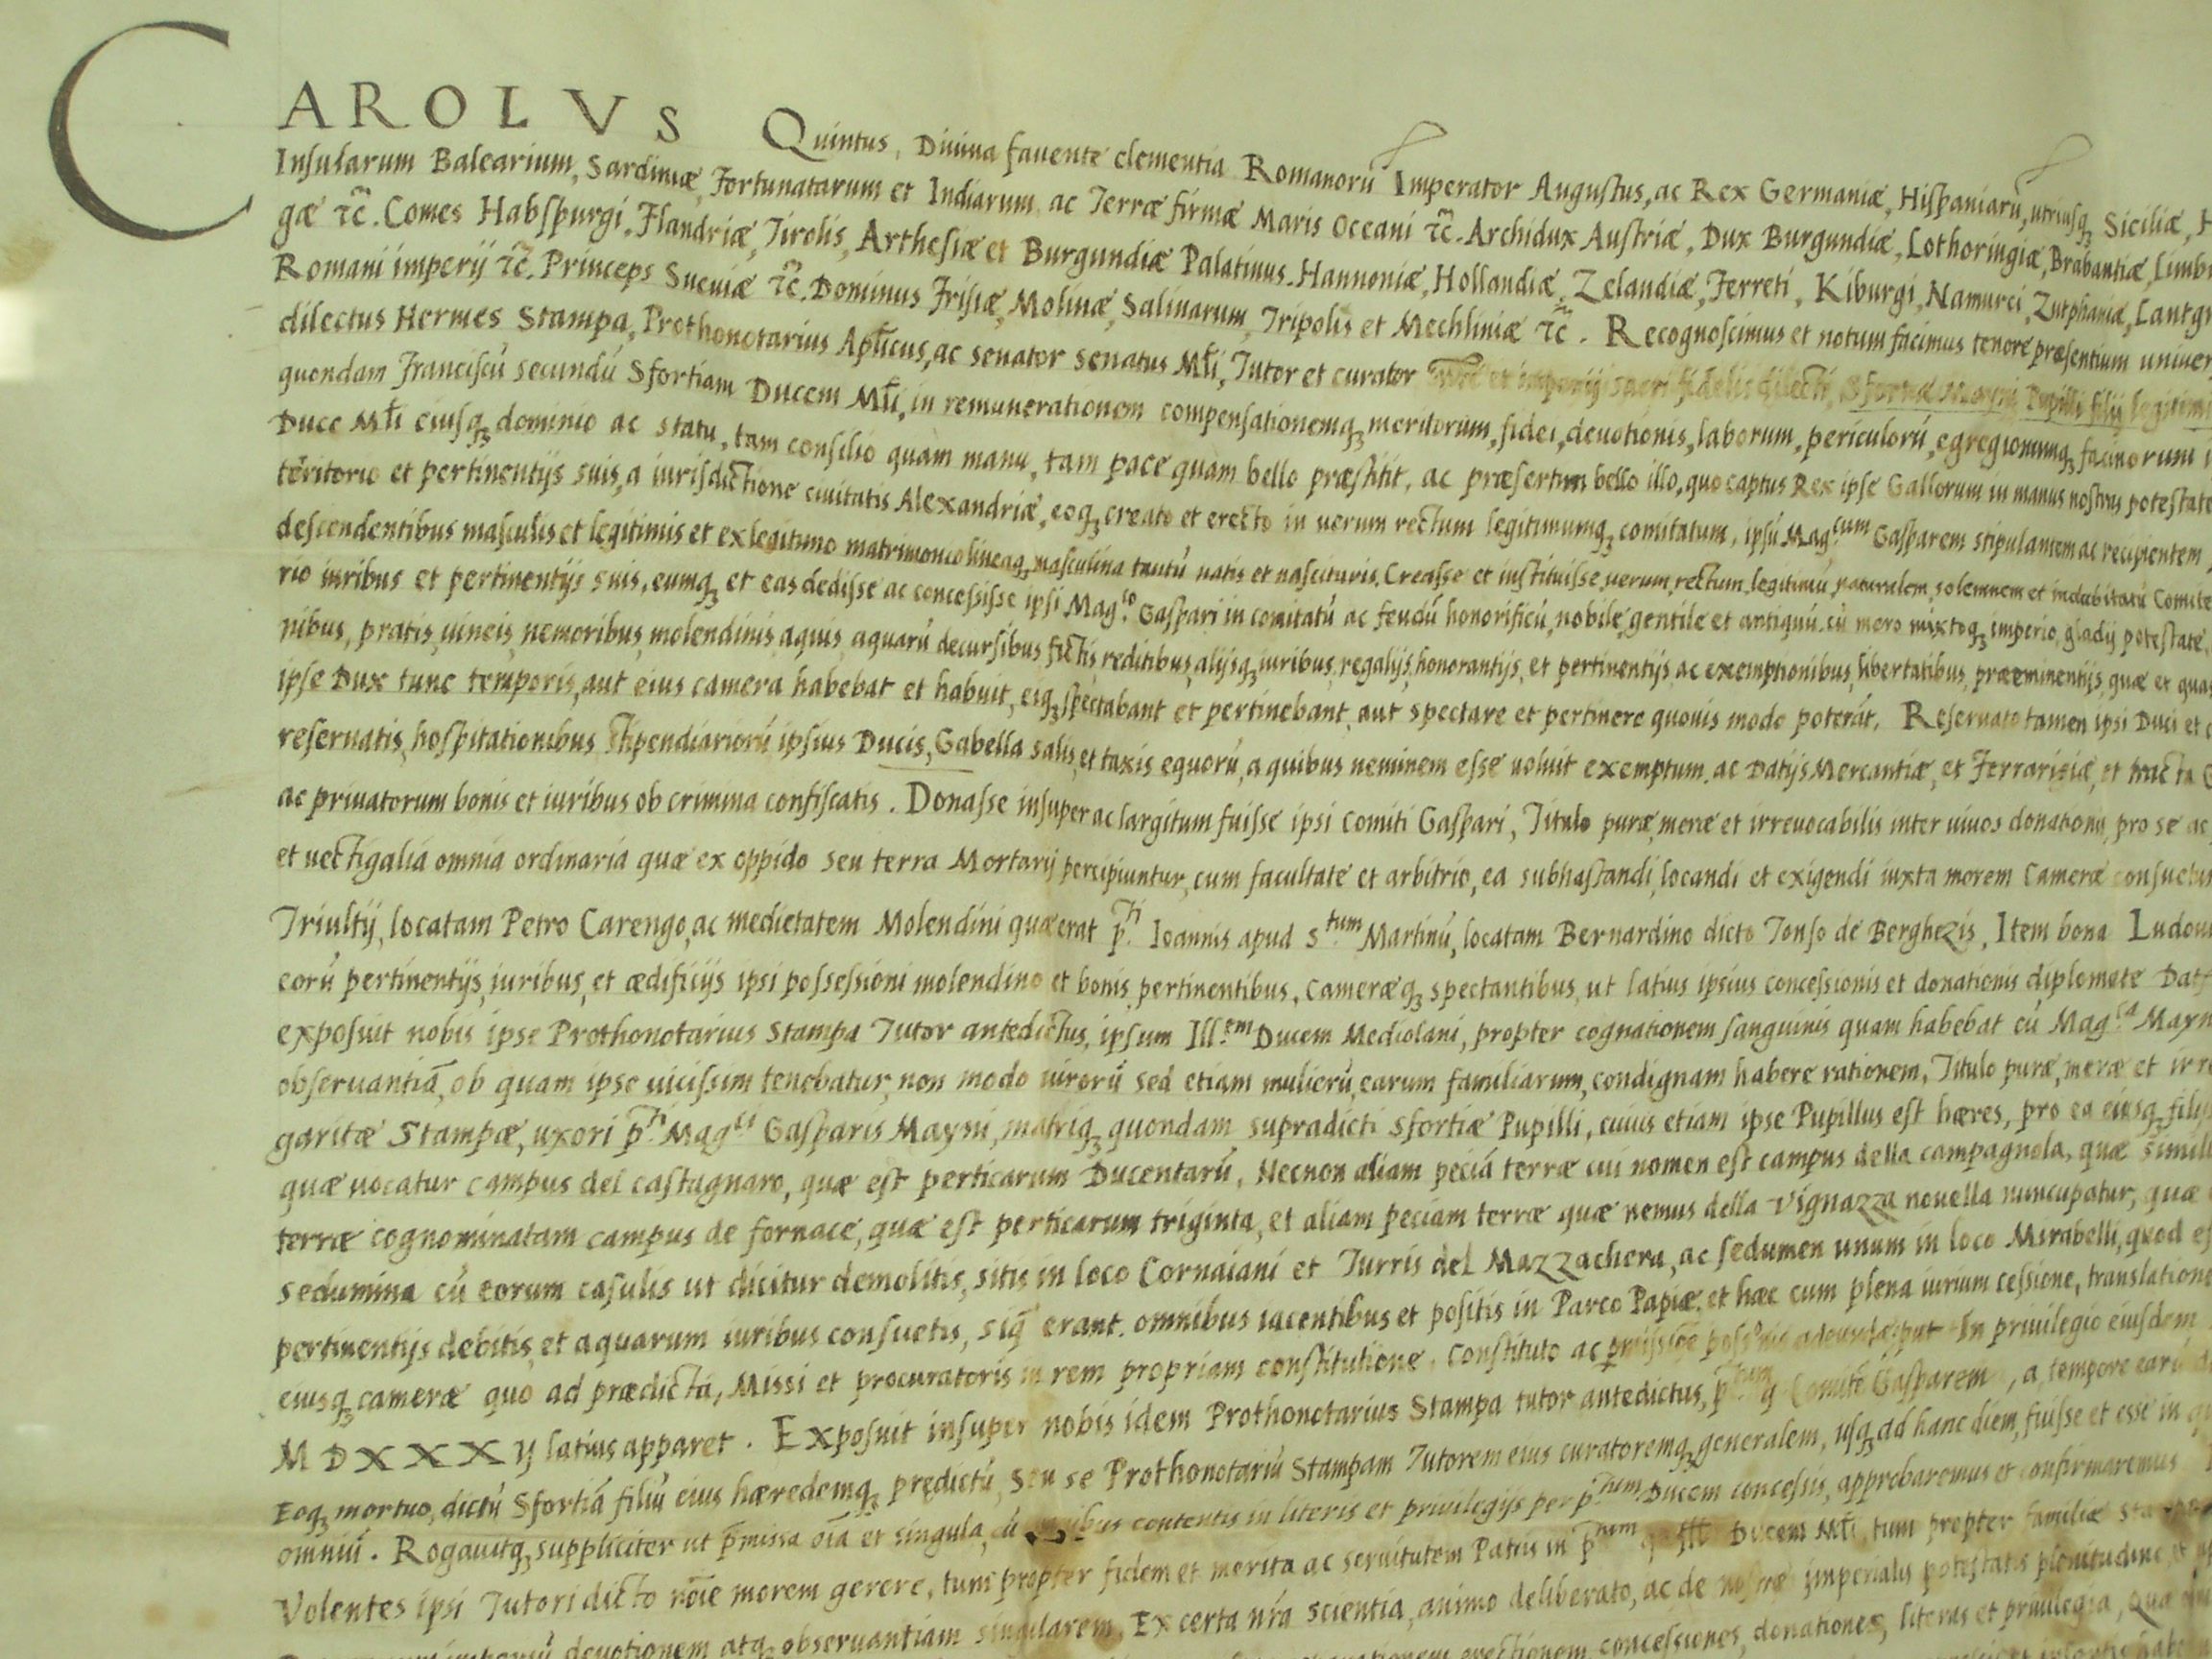 CAROLVS Quintus, Diuina fauente clementia Romanorũ Imperator Augustus, ac Rex Germaniæ, Hispaniarũ, utriusqꝫ Siciliæ, H
Insularum Balearium, Sardiniæ, Fortunatarum et Indiarum, ac Terræ firmæ Maris Oceani ⁊c̃. Archidux Austriæ, Dux Burgundiæ, Lothoringiæ, Brabantiæ, Limbu
gæ ⁊c̃. Comes Habspurgi, Flandriæ, Tirolis, Arthesiæ et Burgundiæ Palatinus, Hannoniæ, Hollandiæ, Zelandiæ, Ferreti, Kiburgi, Namurci, Zutphaniæ, Lantgr
Romani imperij ⁊c̃. Princeps Sueuiæ ⁊c̃. Dominus Frisiæ, Molinæ, Salinarum, Tripolis et Mechliniæ ⁊c̃. Recognoscimus et notum facimus tenore præsentium uniuer
dilectus Hermes Stampa, Prothonotarius Ap̃licus, ac senator senatus Młi, Tutor et curator et imperij sacri fidelis dilecti, Sfortiæ Mayni Pupilli filij legitimi
quondam Franciscũ secundũ Sfortiam Ducem Młi, in remunerationem compensationemqꝫ meritorum, fidei, deuotionis, laborum, periculorũ, egregiorumqꝫ facinorum
Duce Młi eiusqꝫ dominio ac statu, tam consilio quàm manu, tam pace quàm bello præstitit, ac præsertim bello illo, quo captus Rex ipse Gallorum in manus nostras potestate
teritorio et pertinentijs suis, a iurisdictione ciuitatis Alexandriæ, eoqꝫ creato et erecto in uerum rectum legitimumqꝫ comitatum, ipsũ Mag.cum Gasparem stipulantem ac recipientem
descendentibus masculis et legitimis et ex legitimo matrimonio lineaqꝫ masculina tantũ natis et nascituris. Creasse et instituisse uerum, rectum, legitimũ, naturalem, solemnem et indubitatũ Comite
rio iuribus et pertinentijs suis, eumqꝫ et eas dedisse ac concessisse ipsi Mag.co Gaspari in comitatũ ac feudũ honorificũ, nobile, gentile et antiquũ. cũ mero mixtoqꝫ imperio, gladij potestate,
nibus, pratis, uineis, nemoribus, molendinis, aquis, aquarũ decursibus, fictis, reditibus, alijsqꝫ iuribus, regalijs, honorantijs, et pertinentijs ac exemptionibus, libertatibus, præeminentijs, quæ et qua
ipse Dux tunc temporis, aut eius camera habebat et habuit, eiqꝫ spectabant et pertinebant, aut spectare et pertinere quouis modo poterãt. Reseruato tamen ipsi Duci et
reseruatis, hospitationibus stipendiariorũ ipsius Ducis, Gabella salis, et taxis equorũ, a quibus neminem esse uoluit exemptum, ac Datijs Mercantiæ, et Ferrariciæ, et tracta
ac priuatorum bonis et iuribus ob crimina confiscatis. Donasse insuper ac largitum fuisse ipsi comiti Gaspari, Titulo puræ, meræ et irreuocabilis inter uiuos donationis, pro se ac
et uectigalia omnia ordinaria quæ ex oppido seu terra Mortarij percipiuntur, cum facultate et arbitrio, ea subhastandi, locandi et exigendi iuxta morem Cameræ consuetum
Triultij, locatam Petro Carengo, ac medietatem Molendini quæ erat p̃.ti Ioannis apud s.tum Martinũ, locatam Bernardino dicto Tonso de Berghezis, Item bona Ludoui
eorũ pertinentijs, iuribus, et ædificijs ipsi possessioni molendino et bonis pertinentibus, Cameræqꝫ spectantibus, ut latius ipsius concessionis et donationis diplomate Dat
exposuit nobis ipse Prothonotarius Stampa Tutor antedictus, ipsum Ill.em Ducem Mediolani, propter cognationem sanguinis quam habebat cũ Mag.ca Mayn
obseruantiã, ob quam ipse uicissim tenebatur, non modo uirorũ sed etiam mulierũ, earum familiarum, condignam habere rationem, Titulo puræ, meræ et irre
garitæ Stampæ, uxori p̃.ti Mag.ci Gasparis Mayni, matriqꝫ quondam supradicti Sfortiæ Pupilli, cuius etiam ipse Pupillus est hæres, pro ea eiusqꝫ filijs
quæ uocatur campus del castagnaro, quæ est perticarum Ducentarũ, Necnon aliam peciã terræ cui nomen est campus della campagnola, quæ simili
terræ cognominatam campus de fornace, quæ est perticarum triginta, et aliam peciam terræ quæ nemus della Vignazza nouella nuncupatur, quæ
sedumina cũ eorum casulis ut dicitur demolitis, sitis in loco Cornaiani et Turris del Mazzachera, ac sedumen unum in loco Mirabelli, quod es
pertinentijs debitis, et aquarum iuribus consuetis, siq̃ erant. omnibus iacentibus et positis in Parco Papiæ, et hæc cum plena iurium cessione, translatione
eiusqꝫ cameræ quo ad prædicta, Missi et procuratoris in rem propriam constitutione, Constituto ac In priuilegio eiusdem
MDXXXIJ latius apparet. Exposuit insuper nobis idem Prothonotarius Stampa tutor antedictus, p̃.tum q̃ Comitẽ Gasparem, a tempore earũ
Eoqꝫ mortuo, dictũ Sfortiã filiũ eius hæredemqꝫ prędictũ, seu se Prothonotariũ Stampam Tutorem eius curatoremqꝫ generalem, usqꝫ ad hanc diem, fuisse et esse in
omniũ. Rogauitqꝫ suppliciter ut p̃missa oĩa et singula, cũ contentis in literis et priuilegijs per p̃.tum Ducem concessis, approbaremus et confirmaremus
Volentes ipsi Tutori dicto nõie morem gerere, tum propter fidem et merita ac seruitutem Patris in Ducem Młi, tum propter familiæ
deuotionem atqꝫ obseruantiam singularem, Ex certa nr̃a scientia, animo deliberato, ac de nostræ imperialis potestatis plenitudine
erectionem, concessiones, donationes, literas et priuilegia, quæ